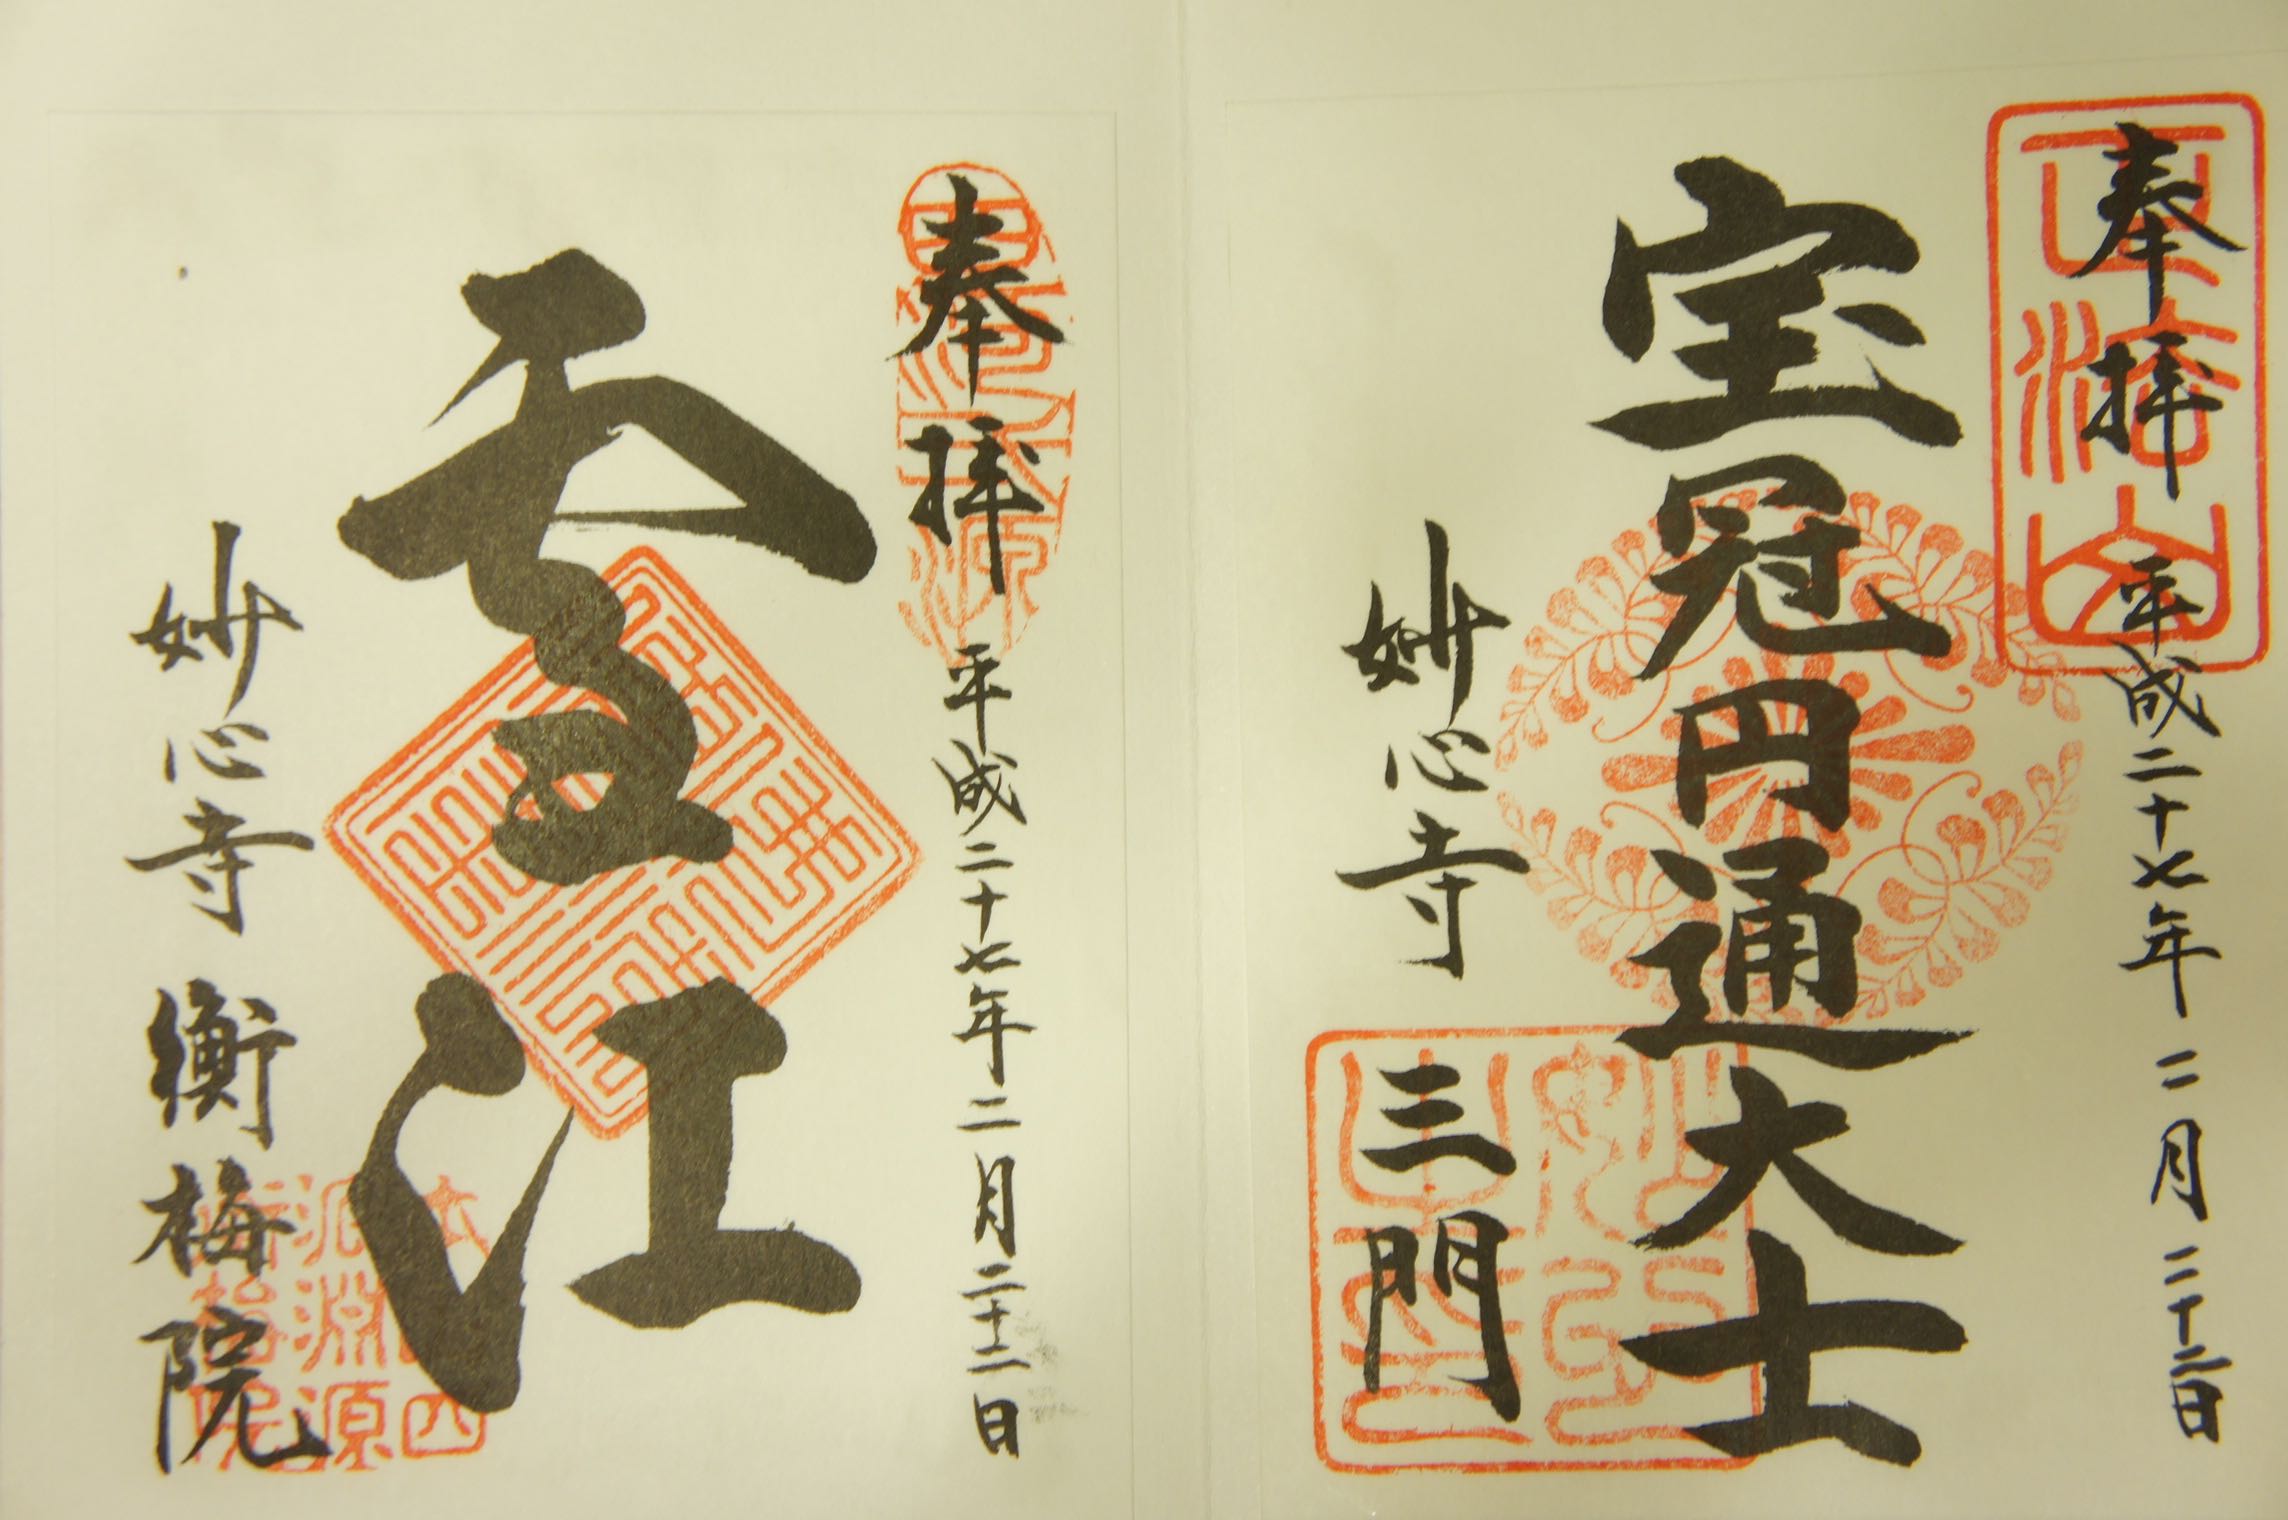 奉拝
平成二十七年二月二十二日
宝冠円通大士
妙心寺
三門
奉拝
平成二十七年二月二十二日
雲江
妙心寺 衡梅院
正法山